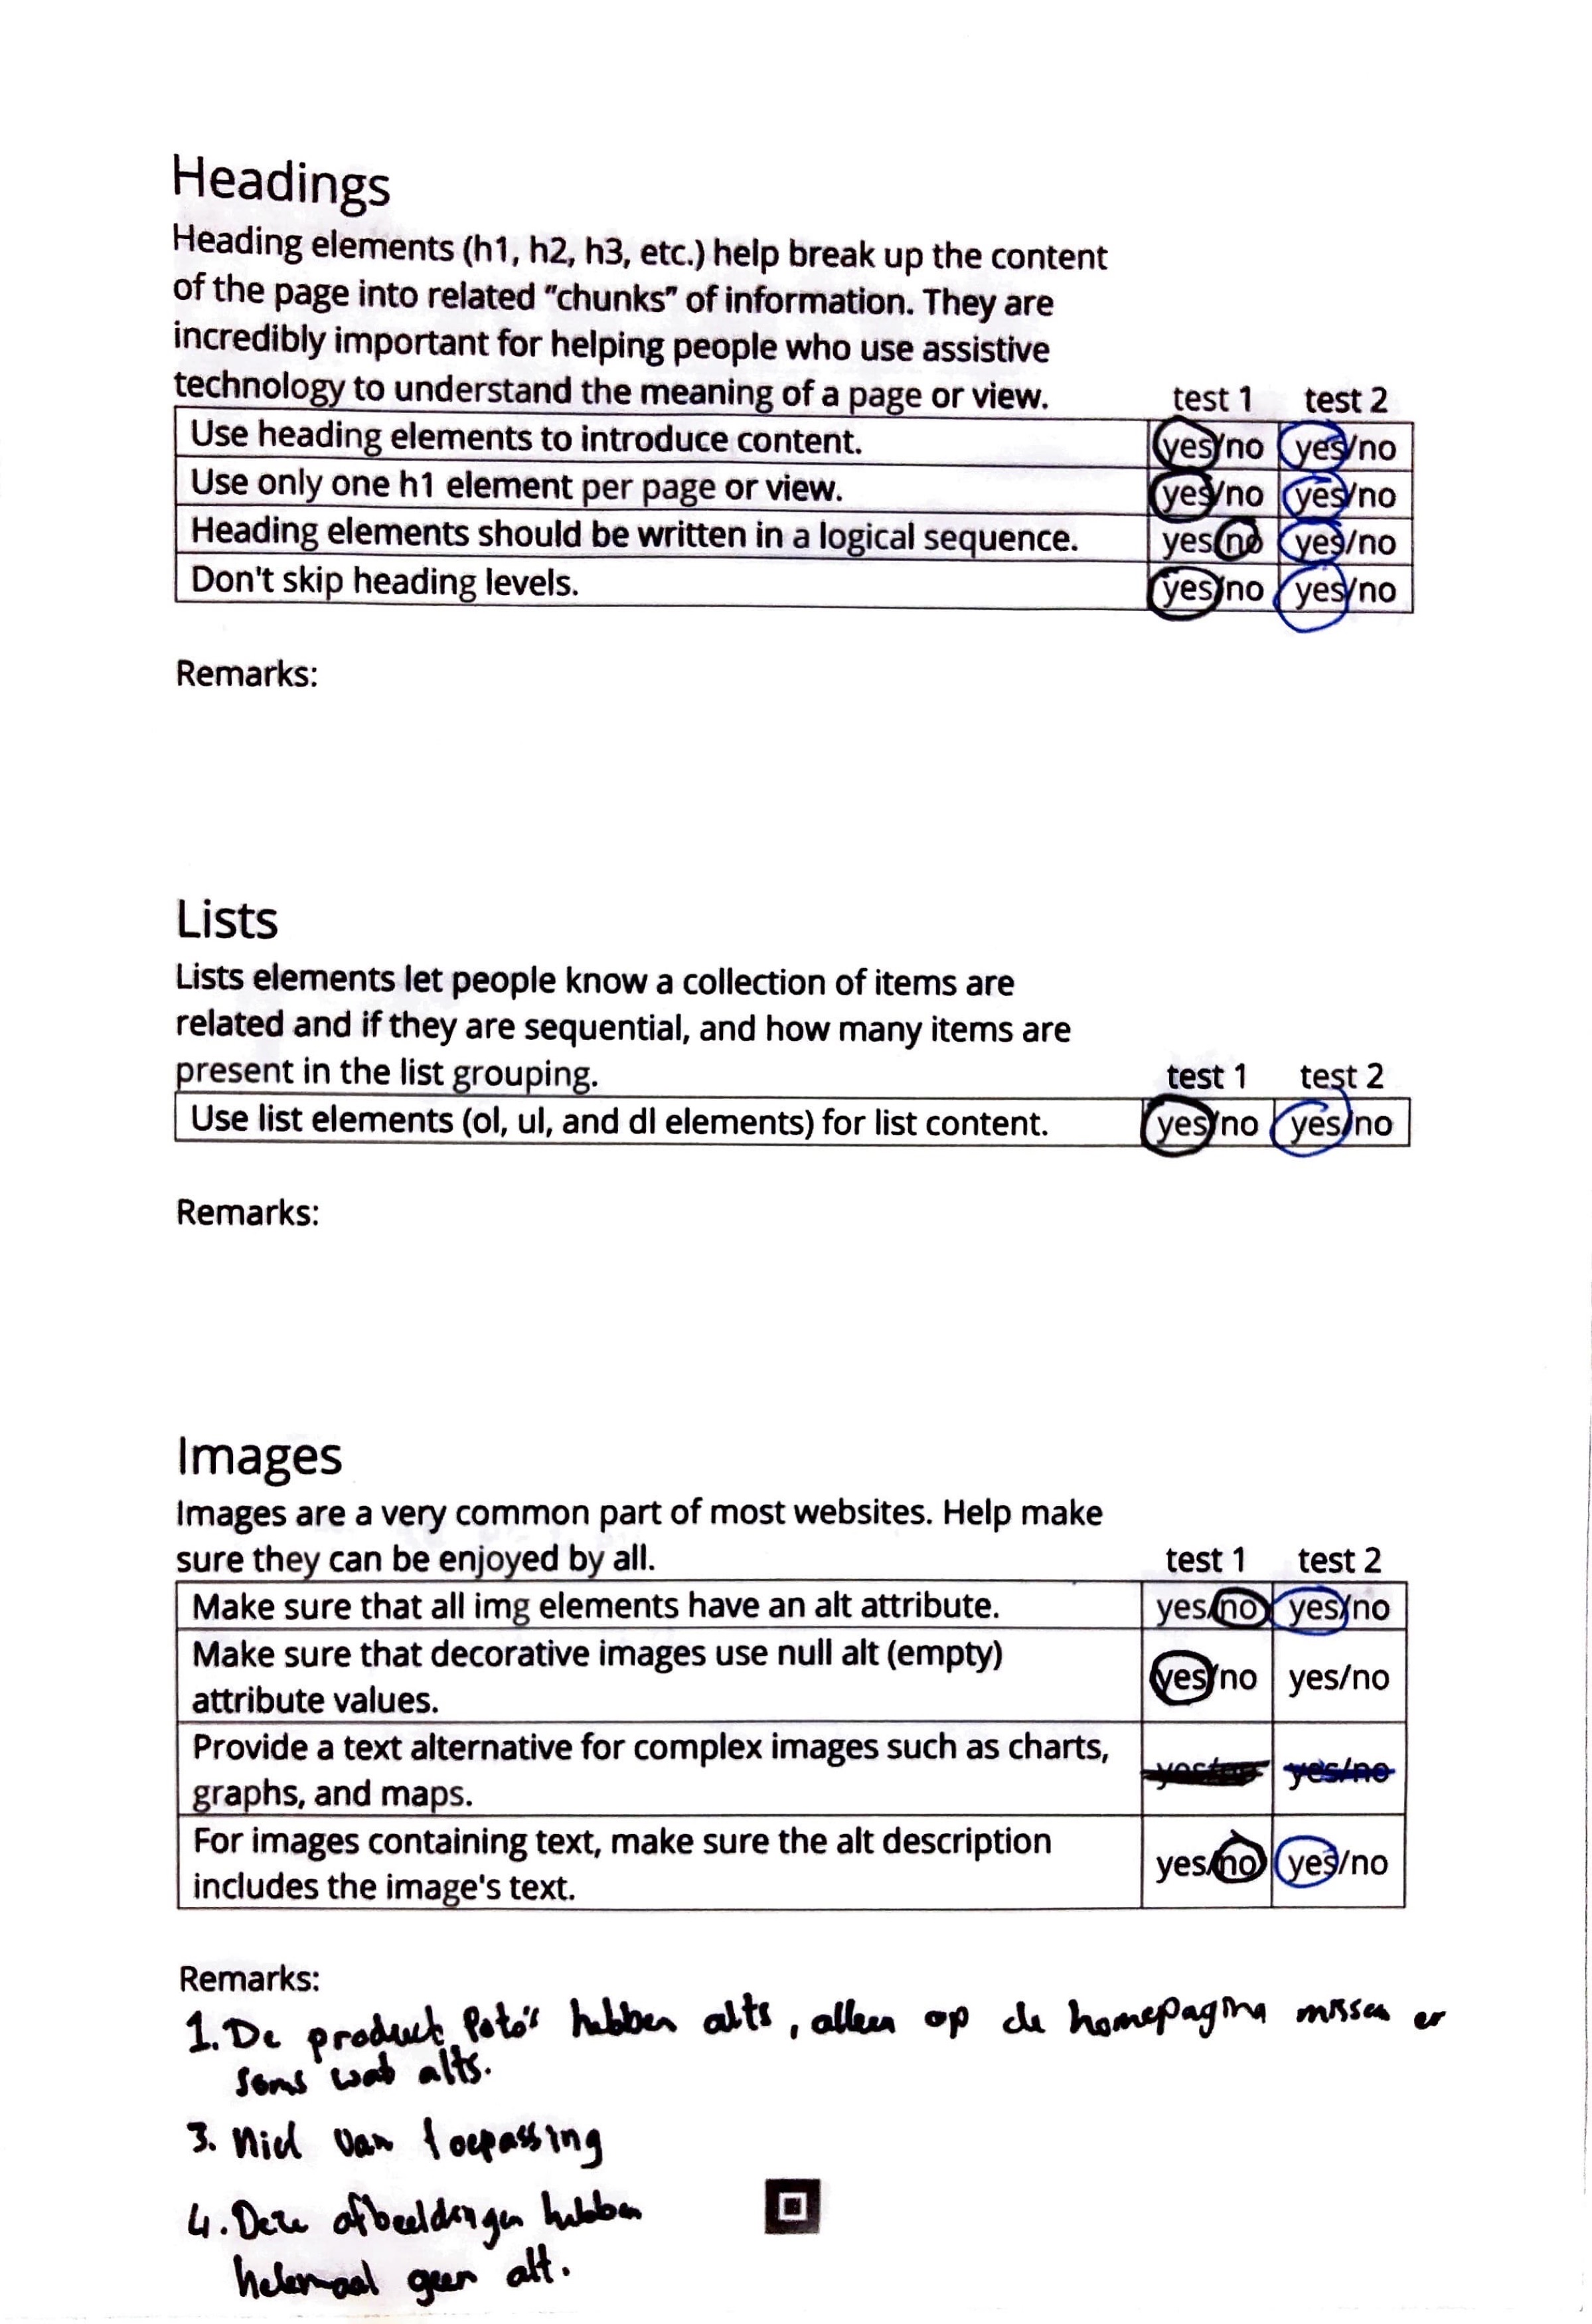 Headings
Heading elements (h1, h2, h3, etc.) help break up the content
of the page into related “chunks” of information. They are
incredibly important for helping people who use assistive
technology to understand the meaning of a page or view. test 1 test 2
Use heading elements to introduce content. yes/no yes/no
Use only one h1 element per page or view. yes/no yes/no
Heading elements should be written in a logical sequence. yes/no yes/no
Don't skip heading levels. yes/no yes/no
Remarks:
Lists
Lists elements let people know a collection of items are
related and if they are sequential, and how many items are
present in the list grouping. test 1 test 2
Use list elements (ol, ul, and dl elements) for list content. yes/no yes/no
Remarks:
Images
Images are a very common part of most websites. Help make
sure they can be enjoyed by all. test 1 test 2
Make sure that all img elements have an alt attribute. yes/no yes/no
Make sure that decorative images use null alt (empty)
attribute values. yes/no yes/no
Provide a text alternative for complex images such as charts,
graphs, and maps. yes/no yes/no
For images containing text, make sure the alt description
includes the image's text. yes/no yes/no
Remarks:
1. De product foto's hebben alts, alleen op de homepagina missen er
soms wat alts.
3. Niet van toepassing
4. Deze afbeeldingen hebben
helemaal geen alt.